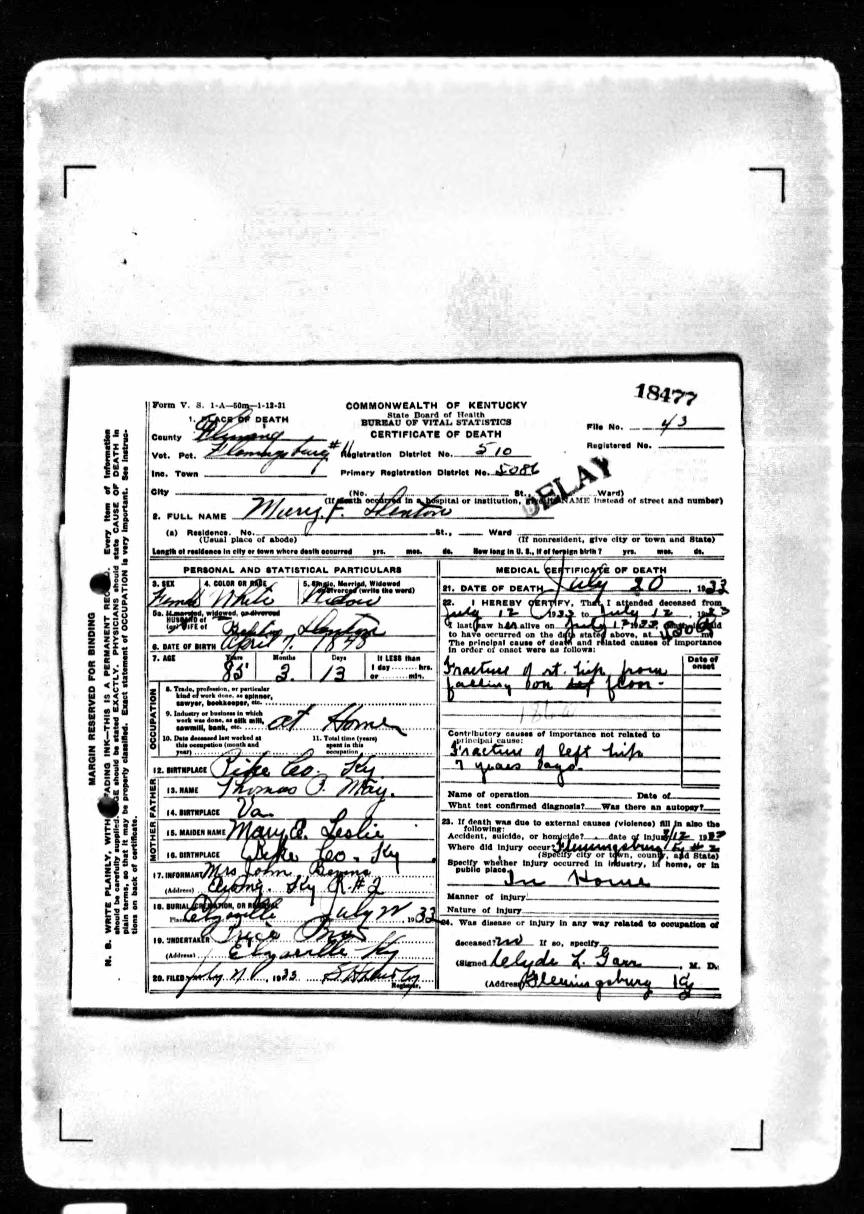 18477
Form V. S. 1-A—50m—1-12-31
COMMONWEALTH OF KENTUCKY
State Board of Health
BUREAU OF VITAL STATISTICS
CERTIFICATE OF DEATH
File No. 43
Registered No.
1. PLACE OF DEATH
County Fleming
Vot. Pct. Flemingsburg #1 Registration District No. 510
Inc. Town Primary Registration District No. 5086
DELAY
City (No. St., Ward)
(If death occurred in a hospital or institution, give its NAME instead of street and number)
2. FULL NAME Mary F. Denton
(a) Residence. No. St., Ward
(Usual place of abode) (If nonresident, give city or town and State)
Length of residence in city or town where death occurred yrs. mos. ds. How long in U. S., if of foreign birth? yrs. mos. ds.
PERSONAL AND STATISTICAL PARTICULARS
3. SEX 4. COLOR OR RACE 5. Single, Married, Widowed or Divorced (write the word)
Female White Widow
5a. If married, widowed, or divorced
HUSBAND of
(or) WIFE of Denton
6. DATE OF BIRTH April 7, 1848
7. AGE Years Months Days If LESS than
1 day hrs.
or min.
85 3 13
OCCUPATION
8. Trade, profession, or particular
kind of work done, as spinner,
sawyer, bookkeeper, etc.
9. Industry or business in which
work was done, as silk mill,
sawmill, bank, etc. at Home
10. Date deceased last worked at
this occupation (month and
year)
11. Total time (years)
spent in this
occupation
12. BIRTHPLACE Pike Co. Ky
FATHER
13. NAME Thomas P. May.
14. BIRTHPLACE Va.
MOTHER
15. MAIDEN NAME Mary E. Leslie
16. BIRTHPLACE Pike Co. Ky
17. INFORMANT Mrs John
(Address) Ky R.#2
18. BURIAL, CREMATION, OR REMOVAL
Place July 22 1933
19. UNDERTAKER Price Bros
(Address) Ky
20. FILED July 1933
Registrar.
MEDICAL CERTIFICATE OF DEATH
21. DATE OF DEATH July 20, 1933
22. I HEREBY CERTIFY, That I attended deceased from
July 12, 1933 to July 12, 1933
I last saw h alive on July 1933 death is said
to have occurred on the date stated above, at m.
The principal cause of death and related causes of importance
in order of onset were as follows:
Date of onset
Fracture of rt. hip from
falling on floor-
Contributory causes of importance not related to
principal cause:
Fracture of left hip
7 years ago.
Name of operation Date of
What test confirmed diagnosis? Was there an autopsy?
23. If death was due to external causes (violence) fill in also the
following:
Accident, suicide, or homicide? date of injury 7/12 1933
Where did injury occur? Flemingsburg Ky # 2
(Specify city or town, county, and State)
Specify whether injury occurred in industry, in home, or in
public place.
In Home
Manner of injury
Nature of injury
24. Was disease or injury in any way related to occupation of
deceased? no If so, specify
(Signed) Clyde L. Garr, M. D.
(Address) Flemingsburg Ky
MARGIN RESERVED FOR BINDING
N. B. WRITE PLAINLY, WITH UNFADING INK—THIS IS A PERMANENT RECORD. Every item of information
should be carefully supplied. AGE should be stated EXACTLY. PHYSICIANS should state CAUSE OF DEATH in
plain terms, so that it may be properly classified. Exact statement of OCCUPATION is very important. See instruc-
tions on back of certificate.